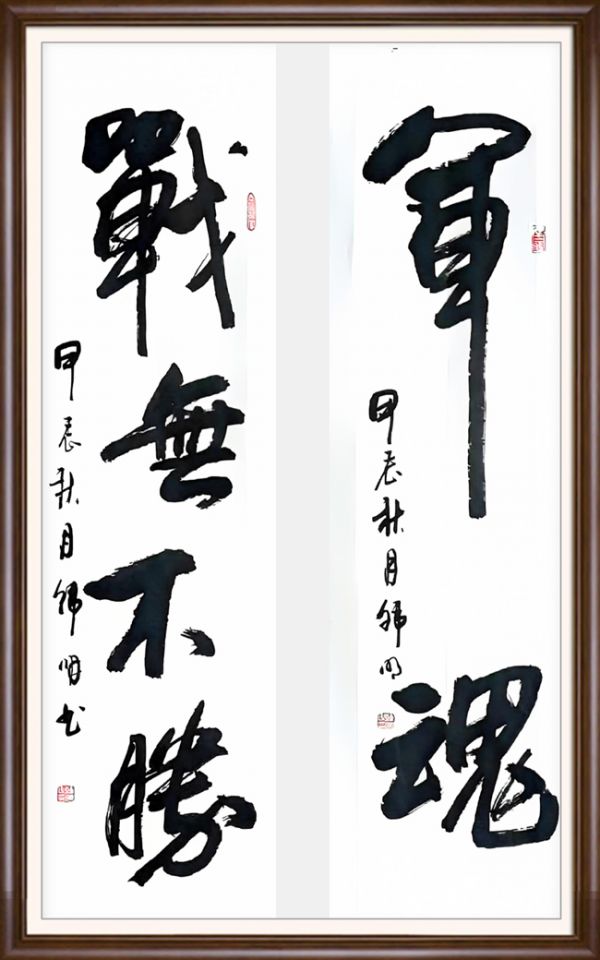 軍魂
甲辰秋月韩明
戰無不勝
甲辰秋月韩明书